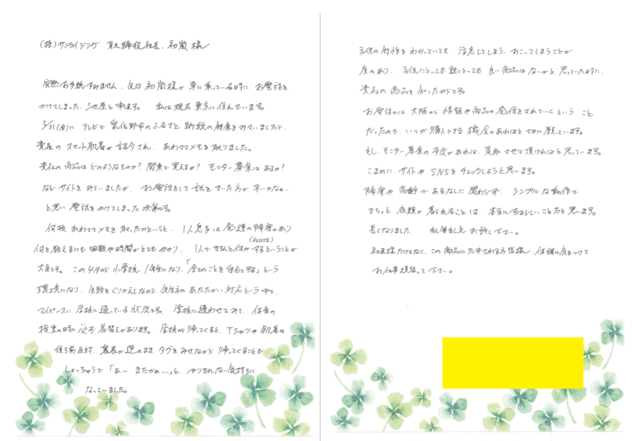 (株)サンライジング 取締役社長 初貝様
突然お手紙すみません。先日 初貝様が車に乗っている時に お電話を
かけてしまった と申します。私は現在 東京に住んでいます。
5/31(金)に テレビで 泉佐野市のふるさと納税の特集をみていましたが、
貴社の スマート肌着が 紹介され、あわててメモを取りました。
貴社の商品はどのようなものか? 関東で買えるか? モニター募集はあるか?
などサイトをみていましたが、お電話をして話をきいた方が早いかなぁ…
と思い 電話をかけてしまった次第です。
何故 あわててメモを取ったかというと、1人息子は 発達の障害があり
何を教えるにも 回数や時間がとてもかかり、1人で きちんと何かするということが
大変です。この4月から小学校1年生になり、「自分のことを自分でする」という
環境になり、失敗をくりかえしながら、先生方のあたたかい対応という中で、
マイペースに学校に通っている状況です。学校に通わせてみて、体育の
授業の時に必ず着替えがあります。学校から帰ってくると、Tシャツや肌着は
後ろ前反対、裏表が逆のまま タグをみせながら 帰ってくることも
しょっちゅうで「あー またかぁ…」と やりきれない気持ちに
なっていました。
子供の特性をわかっていても、注意してしまう、おこってしまうことが
度々あり、子供にとっても 親にとっても 良い商品はないかと思っていた時に、
貴社の商品を知ったからです。
お電話では 大阪から 情報や商品の発信をされていくということ
だったので、いつか 購入できる 機会があればと切に願っています。
もし、モニター募集の予定があれば、参加させて頂ければと思っています。
こまめに サイトや SNSをチェックしようと思います。
障害や高齢であるなしに関わらず、シンプルな動作で
きちっと 衣類が着られることは 本当にすばらしいことだと思います。
長くなりました。 乱筆乱文 お許し下さい。
社長様だけでなく、この商品にたずさわる方皆様、体調に気をつけて
お仕事頑張って下さい。